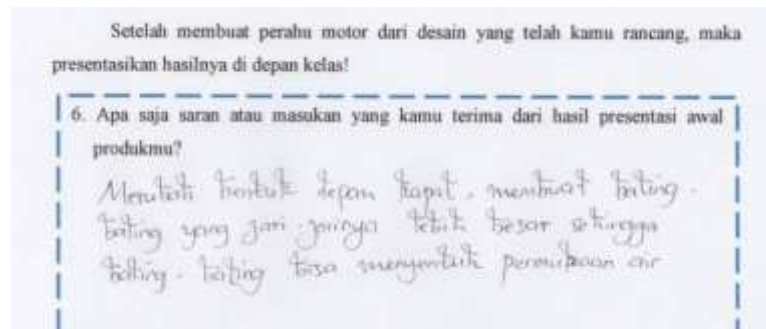 Setelah membuat perahu motor dari desain yang telah kamu rancang, maka
presentasikan hasilnya di depan kelas!
6. Apa saja saran atau masukan yang kamu terima dari hasil presentasi awal
produkmu?
bentuk depan kapal, membuat baling-
baling yang jari-jarinya lebih besar sehingga
baling-baling bisa menyentuh permukaan air